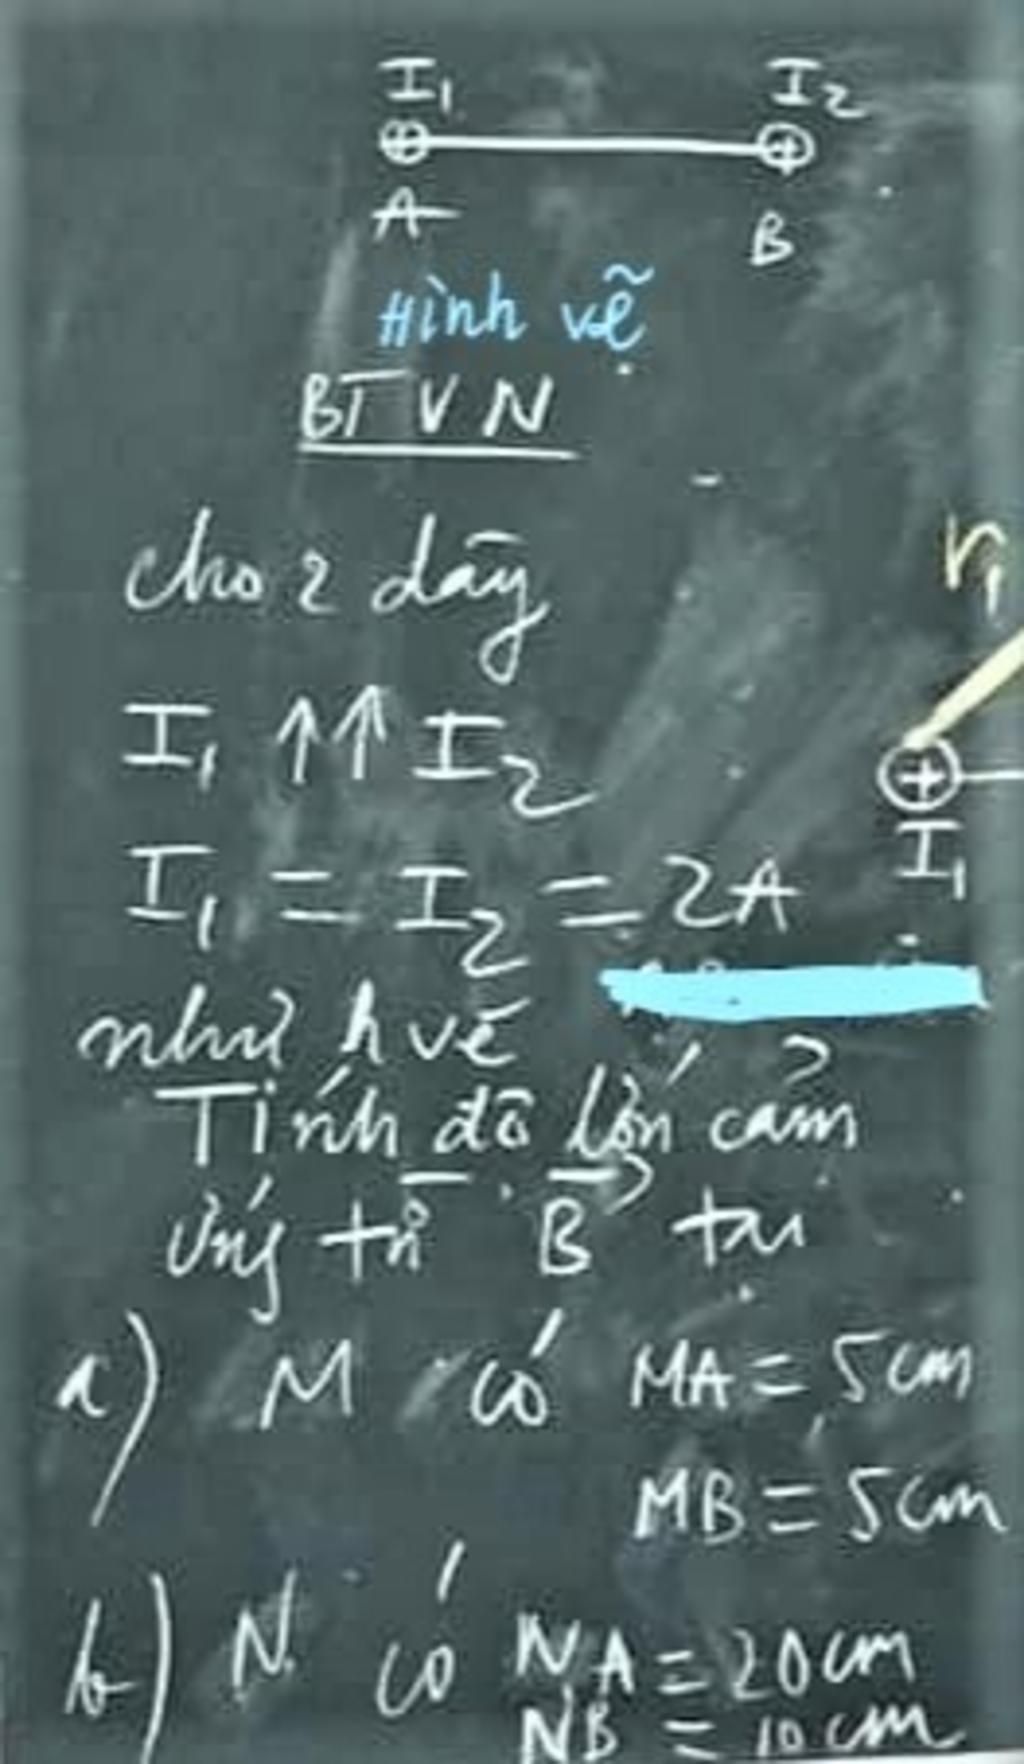 I₁ I₂
A B
Hình vẽ
BTVN
cho 2 dây
r₁
I₁ ↑↑ I₂
I₁
I₁ = I₂ = 2A
như h vẽ
Tính độ lớn cảm
ứng từ B⃗ tại
a) M có MA = 5cm
MB = 5cm
b) N có NA = 20cm
NB = 10cm